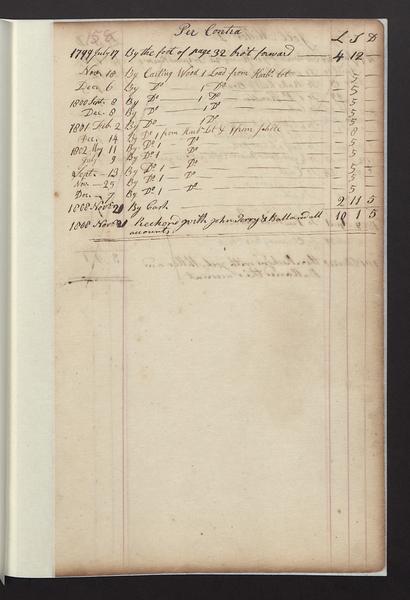 Per Contra L S D
1799 July 17 By the foot of page 32 bro't forward 4 12 —
Nov. 18 By Carting Wood 1 Load from lot — 5 —
Dec. 6 By Do 1 Do 5 —
1800 Sept. 8 By Do 1 Do 5 —
Dec. 8 By Do 1 Do 5 —
1801 Feb 2 By Do 1 Do 5 —
Dec. 14 By Do 1 from Lot & 8 —
1802 May 11 By Do 1 — Do 5 —
July 9 By Do 1 Do 5 —
Sept. 13 By Do 1 — Do 5 —
Nov. 25 By Do 1 — Do 5 —
Dec. 7 By Do 1 — Do 5 —
1808 Novbr 21 By Cash 2 11 5
1808 Novbr 21 Reckond with John Perry & Ballanced all 10 1 5
accounts.